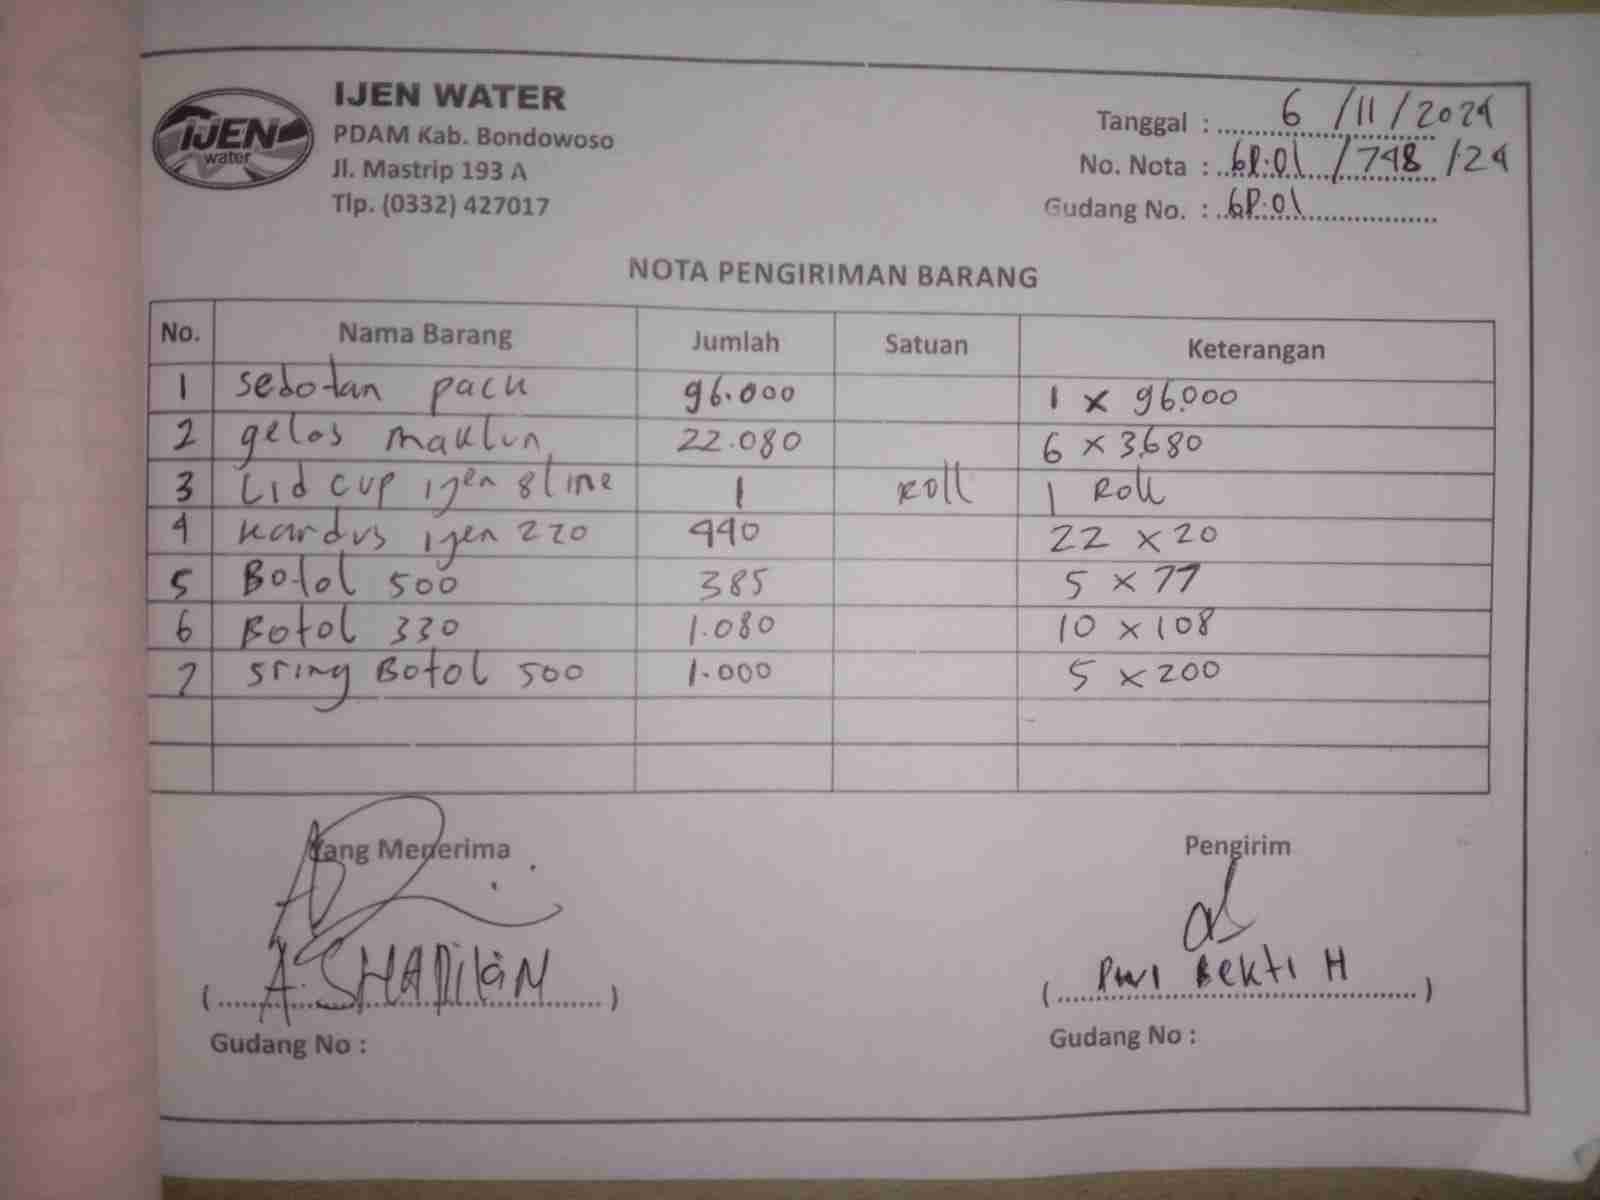 IJEN water
IJEN WATER
PDAM Kab. Bondowoso
Jl. Mastrip 193 A
Tlp. (0332) 427017
Tanggal : 6 /11/2024
No. Nota : GP.01 /748 /24
Gudang No. : GP.01
NOTA PENGIRIMAN BARANG
No. Nama Barang Jumlah Satuan Keterangan
1 sedotan pack 96.000 1 x 96.000
2 gelas maklun 22.080 6 x 3.680
3 Lid cup ijen 8 line 1 Roll 1 Roll
4 kardus ijen 220 440 22 x 20
5 Botol 500 385 5 x 77
6 Botol 330 1.080 10 x 108
7 sring Botol 500 1.000 5 x 200
Yang Menerima
Pengirim
(A. SHADilaN)
(Dwi Bekti H)
Gudang No :
Gudang No :